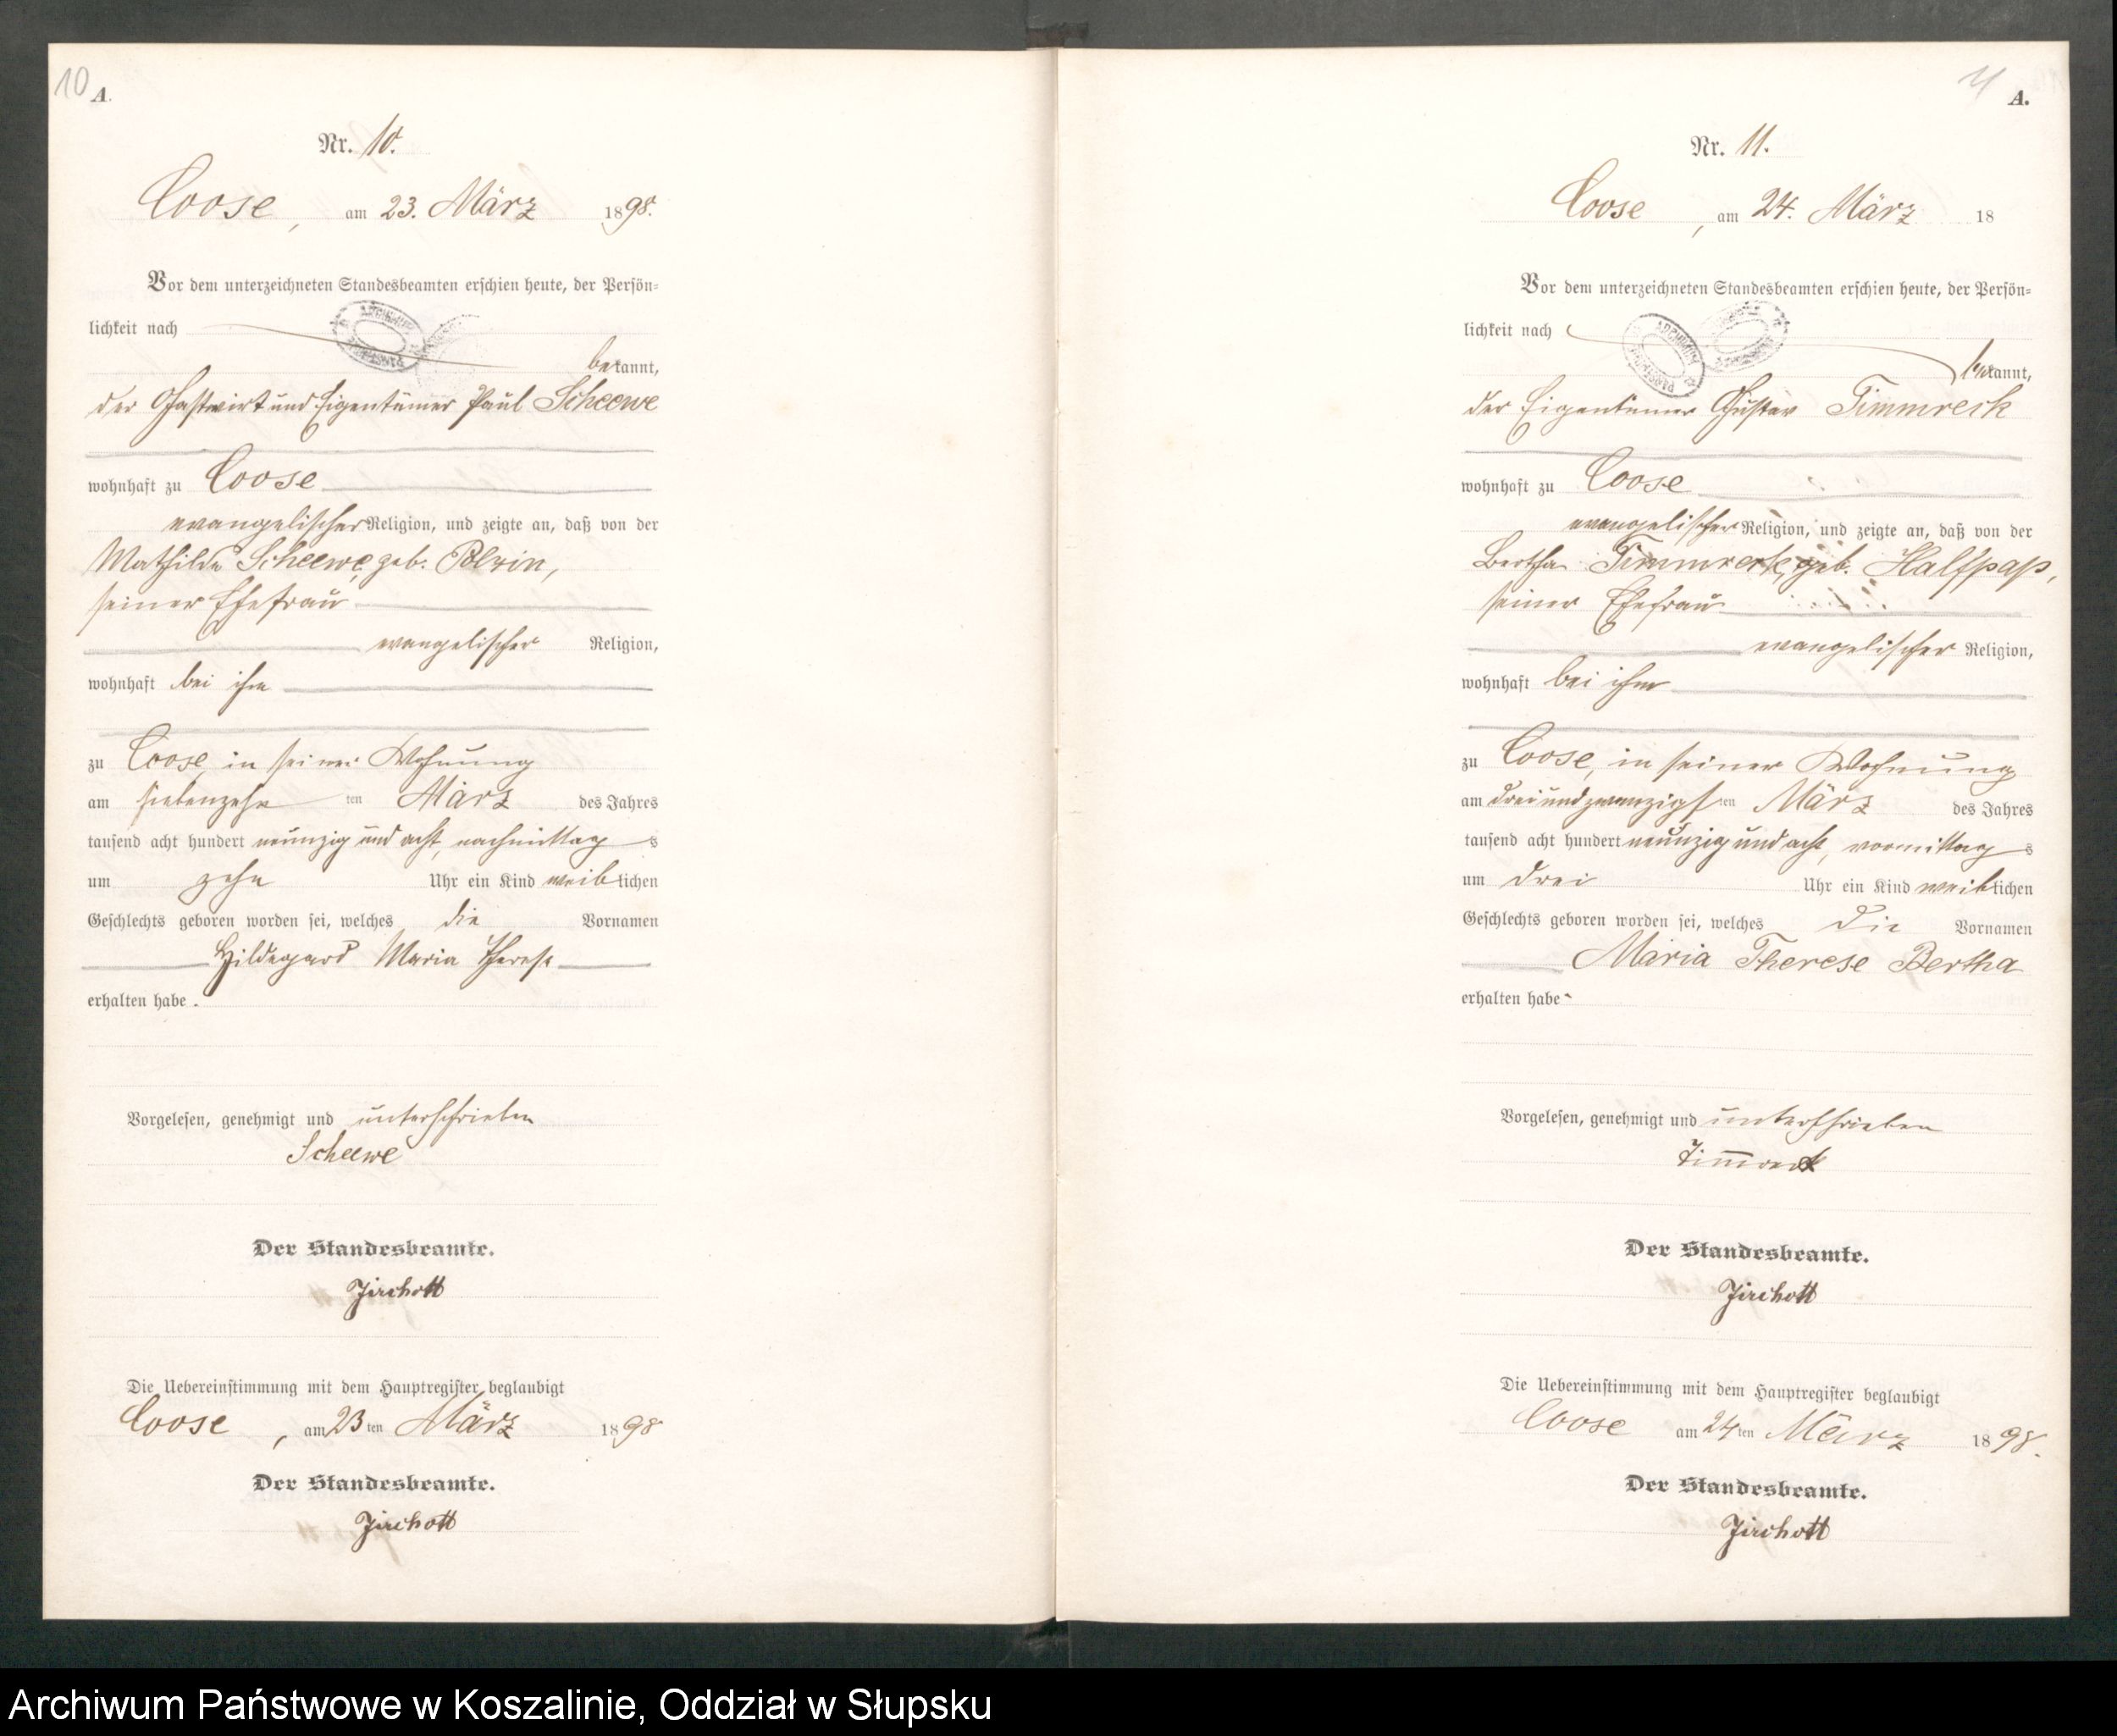 10
A.
Nr. 10.
Coose, am 23. März 1898.
Vor dem unterzeichneten Standesbeamten erschien heute, der Persön-
lichkeit nach
bekannt,
der Gastwirt und Eigentümer Paul Scheewe
wohnhaft zu Coose
evangelischer Religion, und zeigte an, daß von der
Mathilde Scheewe, geb. Polzin,
seiner Ehefrau
evangelischer Religion,
wohnhaft bei ihm
zu Coose, in seiner Wohnung
am siebenzehn ten März des Jahres
tausend acht hundert neunzig und acht, nachmittag s
um zehn Uhr ein Kind weiblichen
Geschlechts geboren worden sei, welches die Vornamen
Hildegard Maria Therese
erhalten habe.
Vorgelesen, genehmigt und unterschrieben
Scheewe
Der Standesbeamte.
Zirchott
Die Uebereinstimmung mit dem Hauptregister beglaubigt
Coose, am 23 ten März 1898
Der Standesbeamte.
Zirchott
11
A.
Nr. 11.
Coose, am 24. März 18
Vor dem unterzeichneten Standesbeamten erschien heute, der Persön-
lichkeit nach
bekannt,
der Eigentümer Gustav Timmreck
wohnhaft zu Coose
evangelischer Religion, und zeigte an, daß von der
Bertha Timmreck, geb. Halfpap,
seiner Ehefrau
evangelischer Religion,
wohnhaft bei ihm
zu Coose, in seiner Wohnung
am dreiundzwanzigsten März des Jahres
tausend acht hundert neunzig und acht, vormittag s
um drei Uhr ein Kind weiblichen
Geschlechts geboren worden sei, welches die Vornamen
Maria Therese Bertha
erhalten habe
Vorgelesen, genehmigt und unterschrieben
Timmreck
Der Standesbeamte.
Zirchott
Die Uebereinstimmung mit dem Hauptregister beglaubigt
Coose am 24 ten März 1898.
Der Standesbeamte.
Zirchott
Archiwum Państwowe w Koszalinie, Oddział w Słupsku